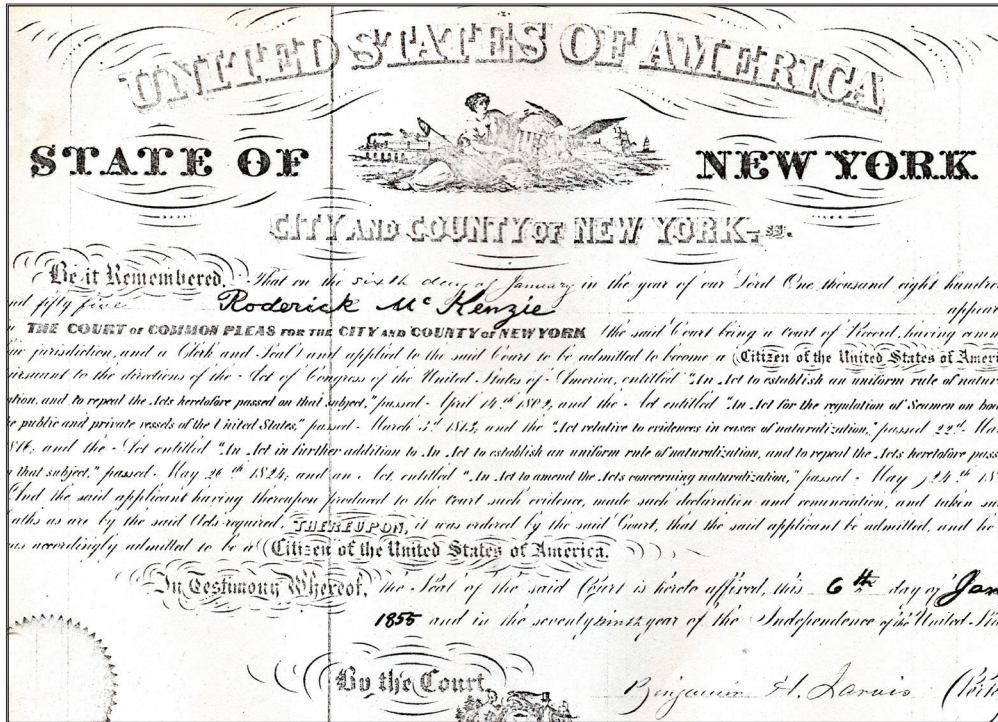 UNITED STATES OF AMERICA
STATE OF NEW YORK
CITY AND COUNTY OF NEW YORK, ss.
Be it Remembered, That on the sixth day of January in the year of our Lord One thousand eight hundre
nd fifty five Roderick Mc Kenzie appear
THE COURT of COMMON PLEAS FOR THE CITY AND COUNTY of NEW YORK (the said Court being a Court of Record, having
jurisdiction, and a Clerk and Seal) and applied to the said Court to be admitted to become a Citizen of the United States of Ameri
ursuant to the directions of the Act of Congress of the United States of America, entitled "An Act to establish an uniform rule of natur
tion, and to repeal the Acts heretofore passed on that subject," passed April 14th 1802, and the Act entitled "An Act for the regulation of Seamen on boa
e public and private vessels of the United States," passed March 3d 1813, and the "Act relative to evidences in cases of naturalization," passed 22d Ma
816, and the Act entitled "An Act in further addition to An Act to establish an uniform rule of naturalization, and to repeal the Acts heretofore pass
n that subject," passed May 26th 1824; and an Act, entitled "An Act to amend the Acts concerning naturalization," passed May 24th 18
And the said applicant having thereupon produced to the Court such evidence, made such declaration and renunciation, and taken su
aths as are by the said Acts required, THEREUPON, it was ordered by the said Court, that the said applicant be admitted, and he
as accordingly admitted to be a Citizen of the United States of America.
In Testimony Whereof, the Seal of the said Court is hereto affixed, this 6th day of Jan
1855 and in the seventy ninth year of the Independence of the United Sta
By the Court,
Benjamin H. Jarvis